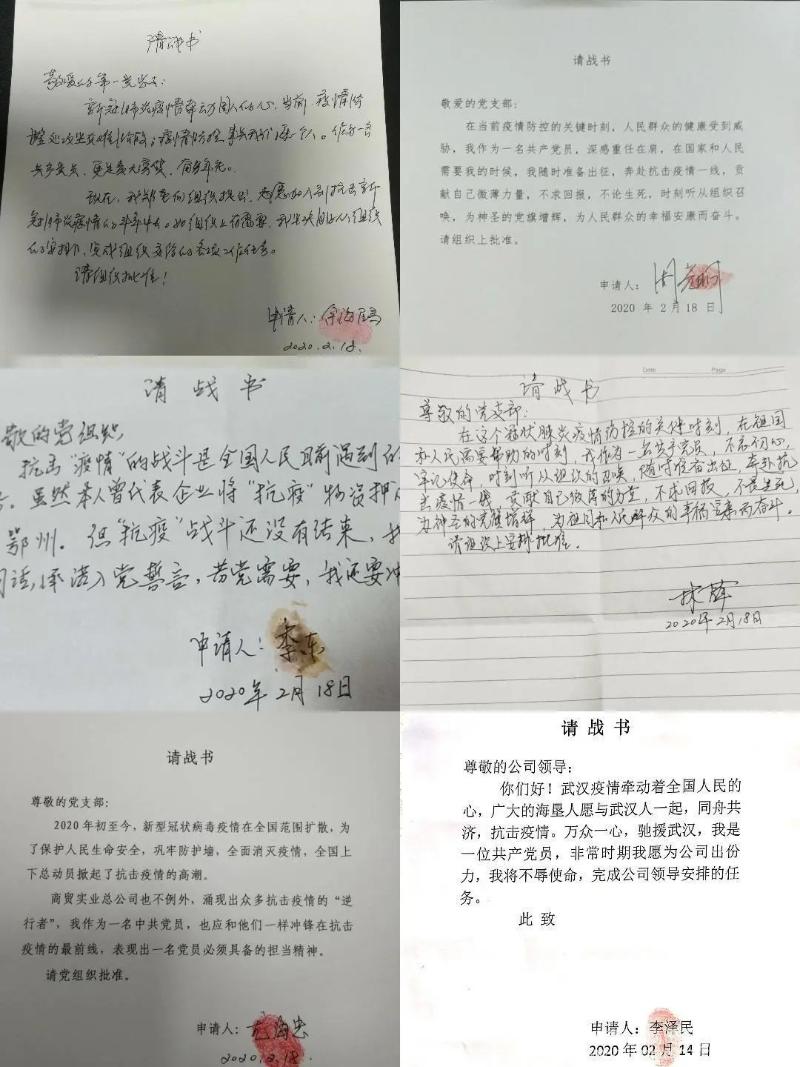 请战书
敬爱的第一党支部:
新冠肺炎疫情牵动国人的心,当前,疫情防
控处攻坚艰难阶段,疫情防控事关我们每个人。作为一名
共产党员,更是责无旁贷,
现在,我郑重向组织提出,志愿加入到抗击新
冠肺炎疫情的斗争中去。如组织上有需要,我坚决服从组织
的安排,完成组织交给的各项工作任务。
请组织批准!
申请人:
2020.2.18.
请战书
敬爱的党支部:
在当前疫情防控的关键时刻,人民群众的健康受到威
胁,我作为一名共产党员,深感重任在肩,在国家和人民
需要我的时候,我随时准备出征,奔赴抗击疫情一线,贡
献自己微薄力量,不求回报,不论生死,时刻听从组织召
唤,为神圣的党旗增辉,为人民群众的幸福安康而奋斗。
请组织上批准。
申请人:
2020 年 2 月 18 日
请战书
敬的党组织
抗击“疫情”的战斗是全国人民目前遇到的
。虽然本人曾代表企业将“抗疫”物资押
鄂州。但“抗疫”战斗还没有结束,我
句话,重温入党誓言,若党需要,我还要冲
申请人:李东
2020年2月18日
Date Page
请战书
尊敬的党支部:
在这个冠状肺炎疫情防控的关键时刻,在祖国
和人民需要帮助的时刻,我作为一名共产党员,不忘初心,
牢记使命,时刻听从组织的召唤,随时准备出征,奔赴抗
击疫情一线,贡献自己微薄的力量,不求回报,不畏生死,
为神圣的党旗增辉,为祖国和人民群众的幸福安康而奋斗。
请组织上安排批准。
林辉
2020年2月18日
请战书
尊敬的党支部:
2020年初至今,新型冠状病毒疫情在全国范围扩散,为
了保护人民生命安全,巩牢防护墙,全面消灭疫情,全国上
下总动员掀起了抗击疫情的高潮。
商贸实业总公司也不例外,涌现出众多抗击疫情的“逆
行者”,我作为一名中共党员,也应和他们一样冲锋在抗击
疫情的最前线,表现出一名党员必须具备的担当精神。
请党组织批准。
申请人:
2020.2.18.
请战书
尊敬的公司领导:
你们好!武汉疫情牵动着全国人民的
心,广大的海垦人愿与武汉人一起,同舟共
济,抗击疫情。万众一心,驰援武汉,我是
一位共产党员,非常时期我愿为公司出份
力,我将不辱使命,完成公司领导安排的任
务。
此 致
申请人:李泽民
2020 年 02 月 14 日